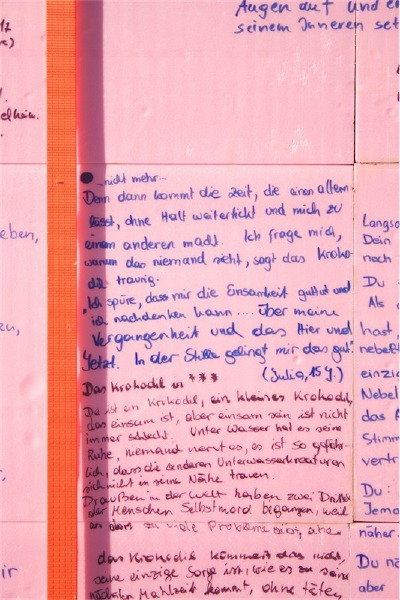 Augen auf und
seinem Inneren
eben,
● ..nicht mehr..
Denn dann kommt die Zeit, die einen altern
lässt, ohne Halt weitertickt und mich zu
einem anderen macht. Ich frage mich,
warum das niemand sieht, sagt das Kroko-
dil traurig.
Ich spüre, dass mir die Einsamkeit guttut und
ich nachdenken kann.... Über meine
Vergangenheit und das Hier und
Jetzt. In der Stille gelingt mir das gut.
(Julia, 15 J.)
Das Krokodil in ***
Da ist ein Krokodil, ein kleines Krokodil,
das einsam ist, aber einsam sein ist nicht
immer schlecht. Unter Wasser hat es seine
Ruhe, niemand nervt es, es ist so gefähr-
lich, dass die anderen Unterwasserkreaturen
sich nicht in seine Nähe trauen.
Draußen in der Welt haben zwei Drittel
der Menschen Selbstmord begangen, weil
zu viele Probleme
das Krokodil kümmert das nicht,
seine einzige Sorge ist, wie es zu seiner
nächsten Mahlzeit kommt, ohne
Langsa
Dein
noch
Du
Als
hast,
nebelt
einzi
Nebel
das
Stimm
vertr
Du:
Jema
näher.
Du
aber